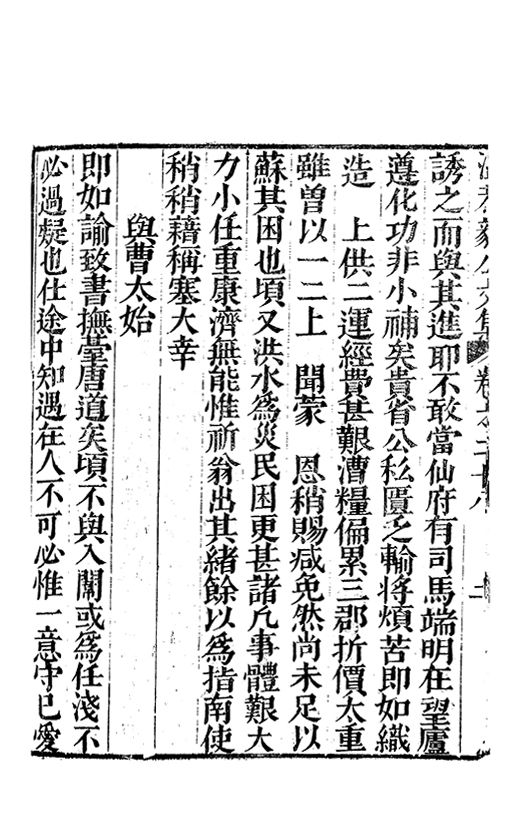 卷之二十八
誘之而與其進耶不敢當仙府有司馬端明在望廬
遵化功非小補矣貴省公私匱乏輸將煩苦即如織
造　上供二運經費甚艱漕糧偏累三郡折價太重
雖曾以一二上　聞蒙　恩稍賜减免然尚未足以
蘇其困也頃又洪水爲災民困更甚諸凡事體艱大
力小任重康濟無能惟祈翁出其緒餘以爲指南使
稍稍藉稱塞大幸
與曹太始
即如諭致書撫臺唐道矣頃不與入闈或爲任淺不
必過疑也仕途中知遇在人不可必惟一意守已愛